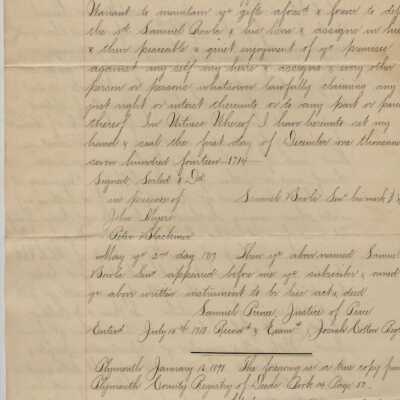 Warrant to maintain ye gifts aforesd & fore to def
the sd Samuel Bowle & his heirs & assigns in his
& their peaceable & quiet enjoyment of ye premises
against my self my heirs & assigns & any other
person or persons whatsoever lawfully claiming any
just right or intrest thereunto or to any part or parce
thereof In Witness Whereof I have hereunto set my
hand & seal the first day of December one thousand
seven hundred fourteen 1714
Signed Sealed & Dd
in presence of Samuel Bowle Senr his mark
John Myers
Peter Blackmor
May ye 2nd day 1717 Then ye above named Samuel
Bowle Senr appeared before me ye subscriber & owned
ye above written instrument to be his act & deed
Samuel Prince Justice of Pece
Enterd July 18th 1718 Recordd & Examd Josiah Cotton Reg
Plymouth January 1891 The foregoing is a true copy from
Plymouth County Registry of Deeds Book 14 Page 57